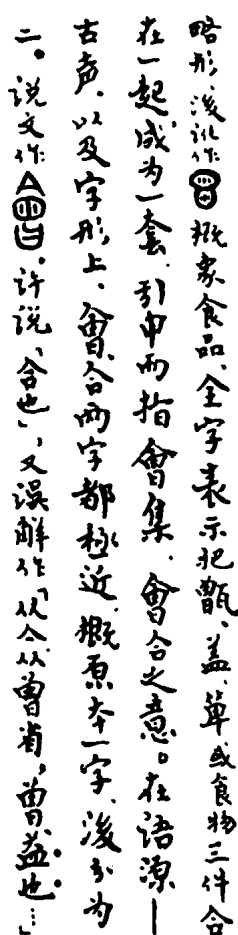 略形、後訛作概象食品、全字表示把甑、盖、箅或食物三件合
在一起、成为一套、引申而指會集、會合之意。在語源—
古声、以及字形上、會、合两字都極近、概原本一字、後分为
二。说文作。许说「合也」,又误解作「从亼从曾省,曾益也…」